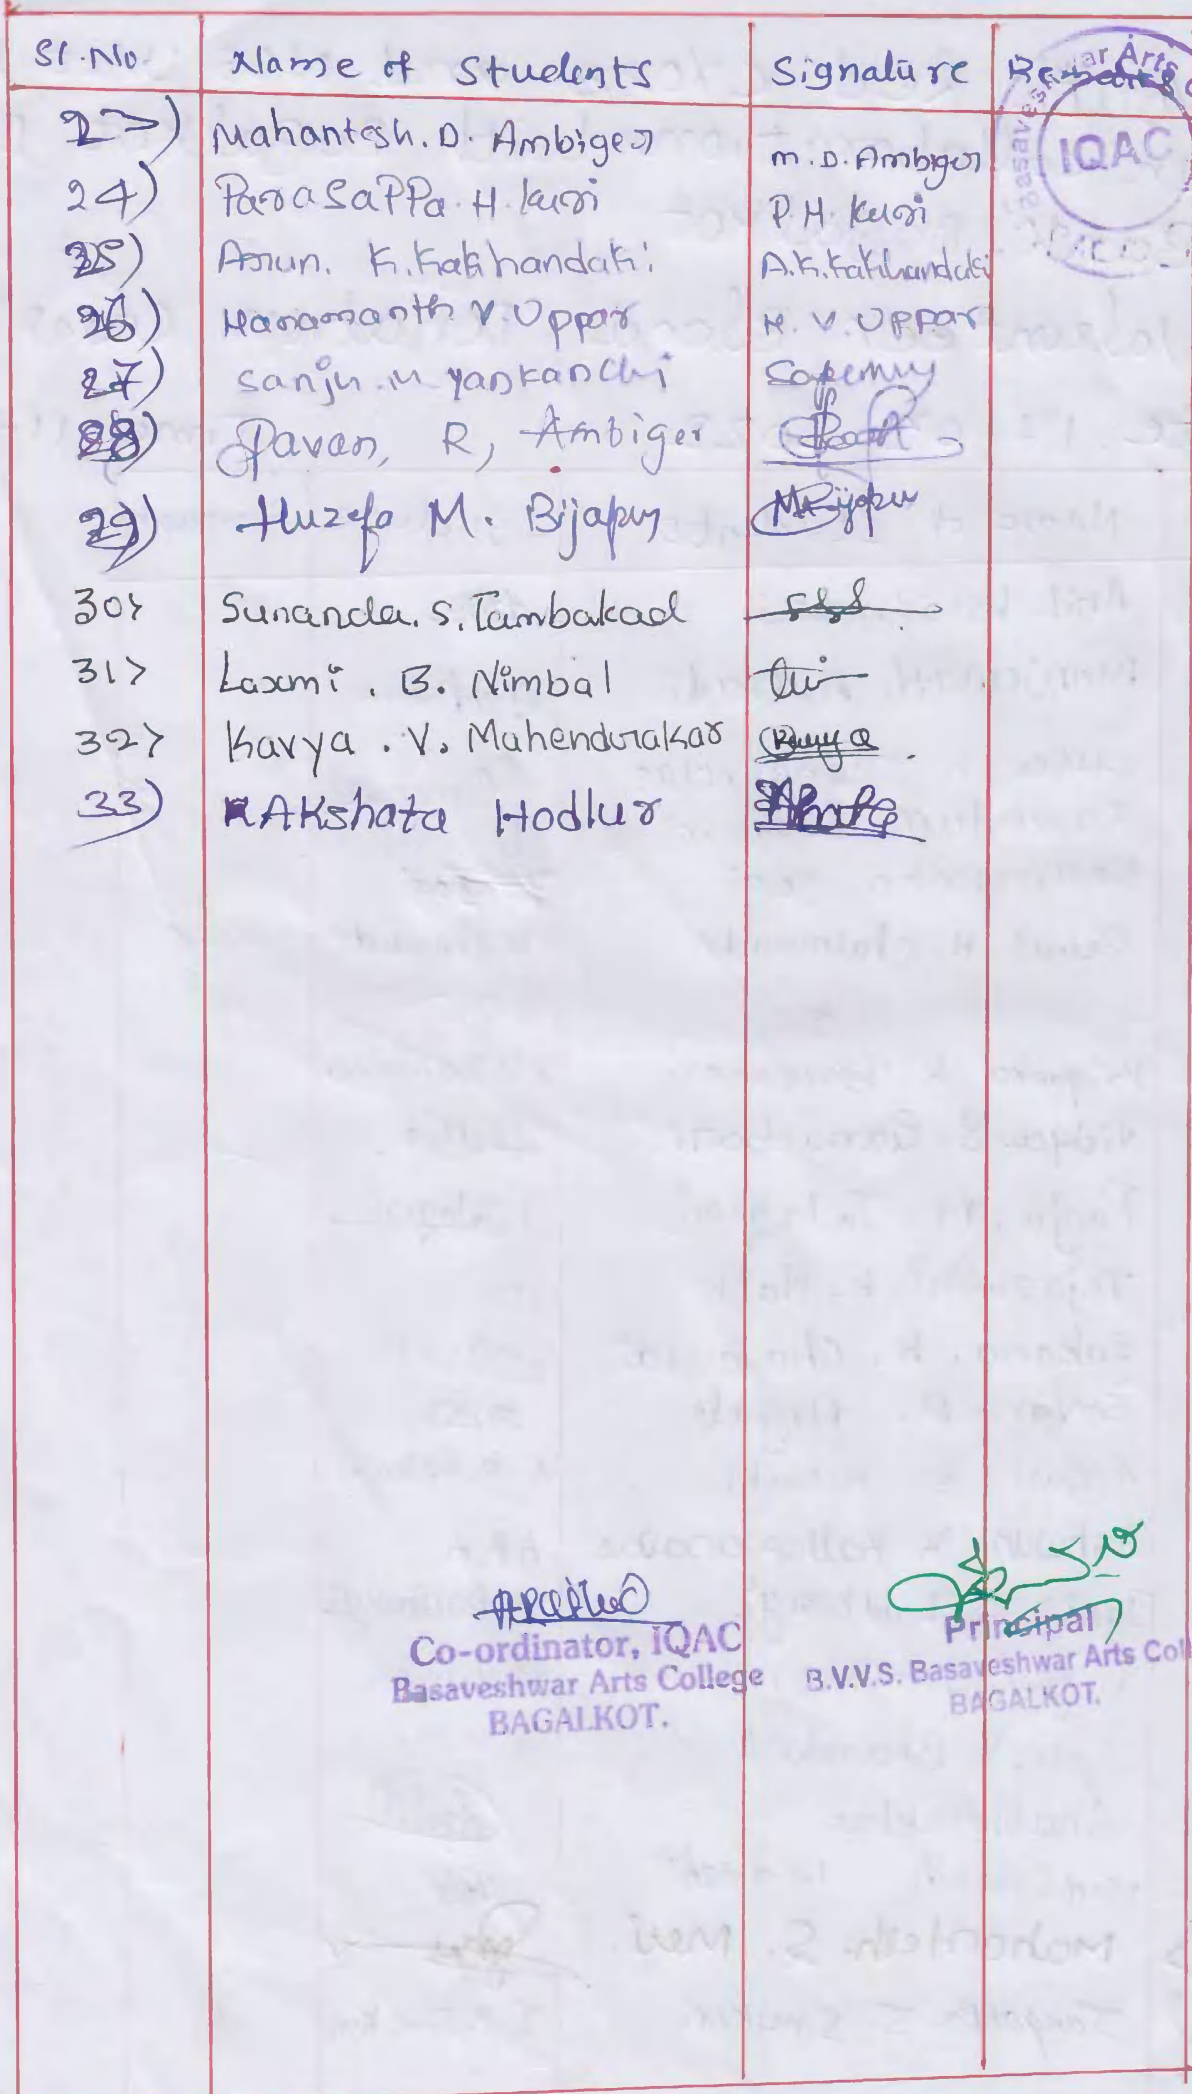 Sl.No. Name of Students Signature Remarks
23) Mahantesh. D. Ambiger M. D. Ambiger
24) Parasappa. H. Kuri P. H. Kuri
25) Arun. K. Kakhandaki. A.K.Kakhandaki
26) Hanamanth V. Uppar H. V. Uppar
27) Sanju. M Yankanchi
28) Pavan, R, Ambiger
29) Huzefa M. Bijapur MBijapur
30) Sunanda. S. Tambakad
31) Laxmi. B. Nimbal
32) Kavya. V. Mahendrakar Kavya
33) Akshata Hodlur
IQAC
Co-ordinator, IQAC
Basaveshwar Arts College
BAGALKOT.
Principal
B.V.V.S. Basaveshwar Arts Col
BAGALKOT.